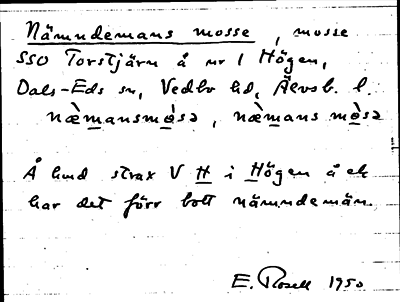 Nämndemans mosse, mosse
SSO Torstjärn å nr 1 Högen,
Dals-Eds sn, Vedbo hd, Älvsb. l.
næ̀mansmǫ̀sə, næ̀mans mǫ̀sə
Å hmd strax V H i Högen å ek
har det förr bott nämndemän.
E. Rosell 1950